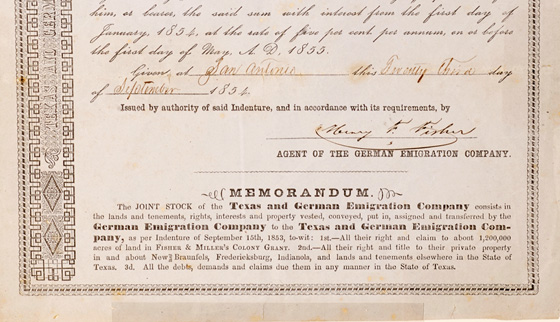 him, or bearer, the said sum with interest from the first day of
January, 1854, at the rate of five per cent. per annum, on or before
the first day of May, A. D. 1855.
Given at San Antonio this Twenty third day
of September 1854
Issued by authority of said Indenture, and in accordance with its requirements, by
Henry F. Fisher
AGENT OF THE GERMAN EMIGRATION COMPANY.
MEMORANDUM.
The JOINT STOCK of the Texas and German Emigration Company consists in
the lands and tenements, rights, interests and property vested, conveyed, put in, assigned and transferred by the
German Emigration Company to the Texas and German Emigration Com-
pany, as per Indenture of September 15th, 1853, to-wit: 1st.—All their right and claim to about 1,200,000
acres of land in FISHER & MILLER'S COLONY GRANT. 2nd.—All their right and title to their private property
in and about New Braunfels, Fredericksburg, Indianola, and lands and tenements elsewhere in the State of
Texas. 3d. All the debts, demands and claims due them in any manner in the State of Texas.